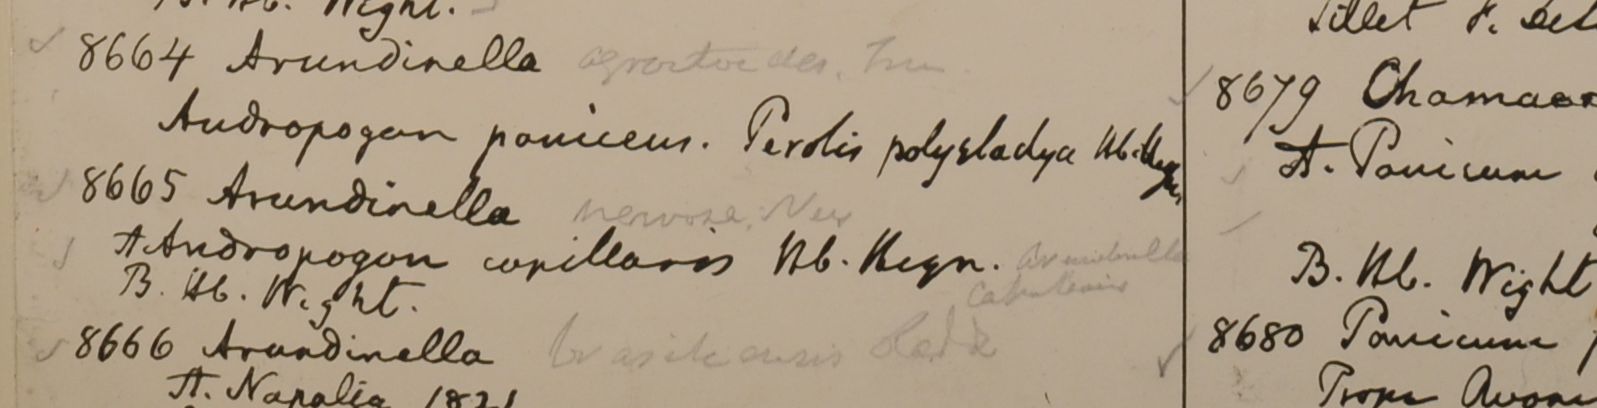 B. Hb. Wight.
8664 Arundinella agrostoides. Trin.
Andropogon paniceus. Perotis polystachya Hb. Heyn.
8665 Arundinella nervosa. Nees
A Andropogon capillaris Hb. Heyn. Arundinella
B. Hb. Wight.
8666 Arundinella brasiliensis Radd
A. Napalia 1821
8679
A. Panicum
B. Hb. Wight
8680 Panicum